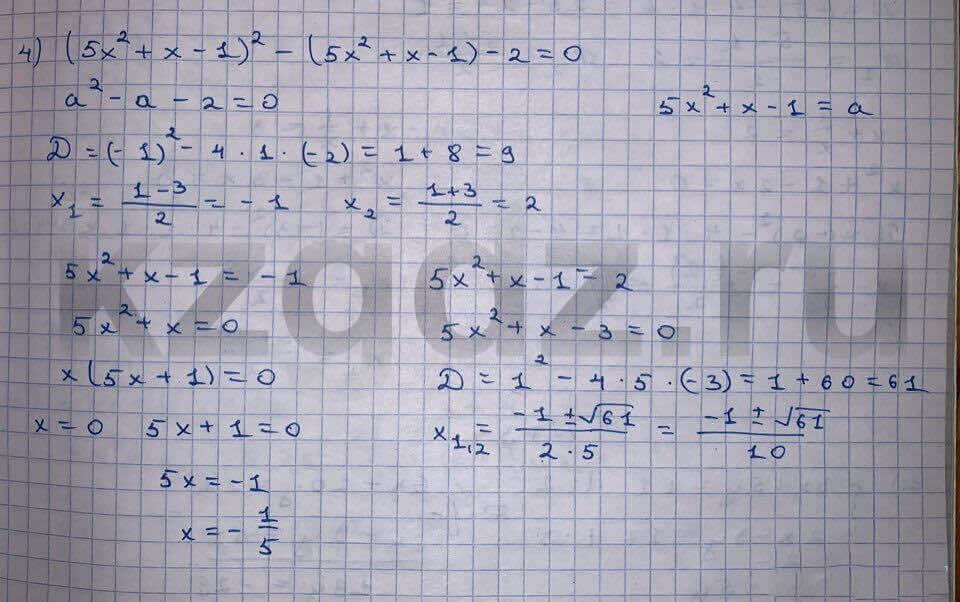 4) (5x² + x - 1)² - (5x² + x - 1) - 2 = 0
a² - a - 2 = 0
5x² + x - 1 = a
D = (-1)² - 4 · 1 · (-2) = 1 + 8 = 9
x₁ = (1 - 3)/2 = -1 x₂ = (1 + 3)/2 = 2
5x² + x - 1 = -1
5x² + x = 0
x(5x + 1) = 0
x = 0 5x + 1 = 0
5x = -1
x = -1/5
5x² + x - 1 = 2
5x² + x - 3 = 0
D = 1² - 4 · 5 · (-3) = 1 + 60 = 61
x₁,₂ = (-1 ± √61)/(2 · 5) = (-1 ± √61)/10
kzgdz.ru